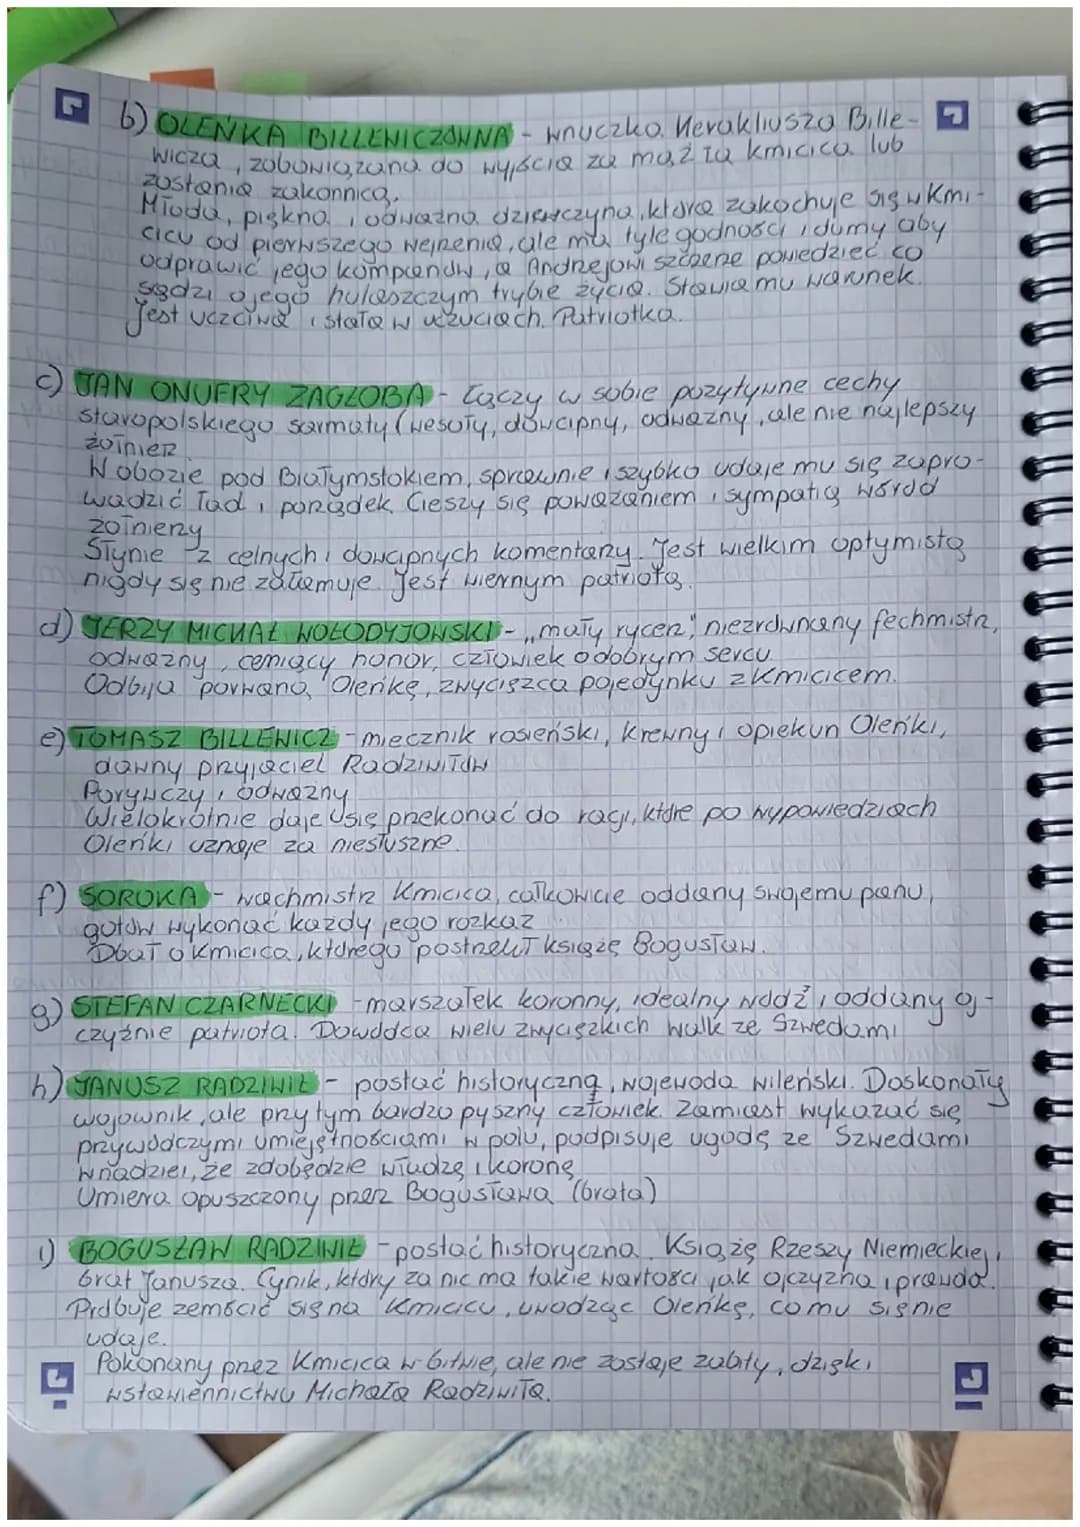 b) OLEŃKA BILLEWICZÓWNA - wnuczka Herakliusza Bille-
wicza, zobowiązana do wyjścia za mąż za kmicica lub
zostania zakonnicą.
Młoda, piękna i odważna dziewczyna, która zakochuje się w Kmi-
cicu od pierwszego wejrzenia, ale ma tyle godności i dumy aby
odprawić jego kompanów, a Andrzejowi szczerze powiedzieć co
sądzi o jego hulaszczym trybie życia. Stawia mu warunek.
Jest uczciwa i stała w uczuciach. Patriotka.
c) JAN ONUFRY ZAGŁOBA - łączy w sobie pozytywne cechy
staropolskiego sarmaty (wesoły, dowcipny, odważny, ale nie najlepszy
żołnierz
W obozie pod Białymstokiem, sprawnie i szybko udaje mu się zapro-
wadzić ład i porządek Cieszy się poważaniem i sympatią wśród
żołnierzy
Słynie z celnych i dowcipnych komentarzy. Jest wielkim optymistą
nigdy się nie załamuje. Jest wiernym patriotą.
d) JERZY MICHAŁ WOŁODYJOWSKI - „mały rycerz", niezrównany fechmistrz,
odważny, ceniący honor, człowiek o dobrym sercu
Odbija porwaną Oleńkę, zwycięzca pojedynku z Kmicicem.
e) TOMASZ BILLEWICZ - miecznik rosieński, krewny i opiekun Oleńki,
dawny przyjaciel Radziwiłłów
Porywczy i odważny
Wielokrotnie daje się przekonać do racji, które po wypowiedziach
Oleńki uznaje za niesłuszne.
f) SOROKA - wachmistrz Kmicica, całkowicie oddany swojemu panu,
gotów wykonać każdy jego rozkaz
Dbał o Kmicica, którego postrzelił książę Bogusław.
g) STEFAN CZARNECKI - marszałek koronny, idealny wódź i oddany oj-
czyźnie patriota. Dowódca wielu zwycięzkich walk ze Szwedami
h) JANUSZ RADZIWIŁ - postać historyczną, wojewoda wileński. Doskonały
wojownik, ale przy tym bardzo pyszny człowiek. Zamiast wykazać się
przywódczymi umiejętnościami w polu, podpisuje ugodę ze Szwedami
w nadziei, że zdobędzie władzę i koronę
Umiera opuszczony przez Bogusława (brata)
i) BOGUSŁAW RADZIWIŁ - postać historyczna. Książę Rzeszy Niemieckiej,
brat Janusza. Cynik, który za nic ma takie wartości jak ojczyzna i prawda.
Próbuje zemścić się na Kmicicu, uwodząc Oleńkę, co mu się nie
udaje.
Pokonany przez Kmicica w bitwie, ale nie zostaje zabity, dzięki
wstawiennictwu Michała Radziwiła.